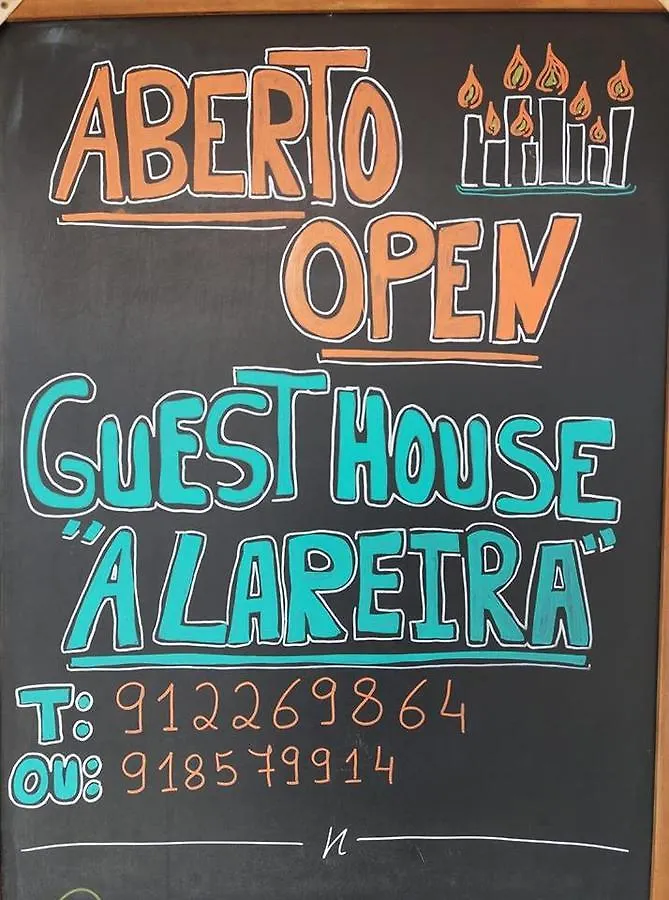 ABERTO
OPEN
GUEST HOUSE
"A LAREIRA"
T: 912269864
OU: 918579914